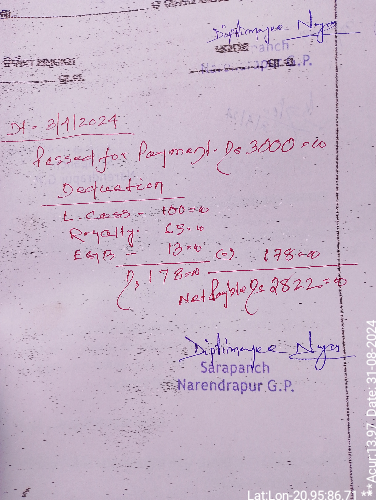 Diptimayee Nayak
Dt - 3/1/2024
Passed for Payment Rs 3000=00
Deduction
L. Cess - 100=00
Royalty: 65=00
13=00
(-) 178=00
Rs 178=00
Net Payble Rs 2822=00
Diptimayee Nayak
Sarapanch
Narendrapur G.P.
Lat:Lon-20.95:86.71 **Acur:13.97, Date: 31-08-2024